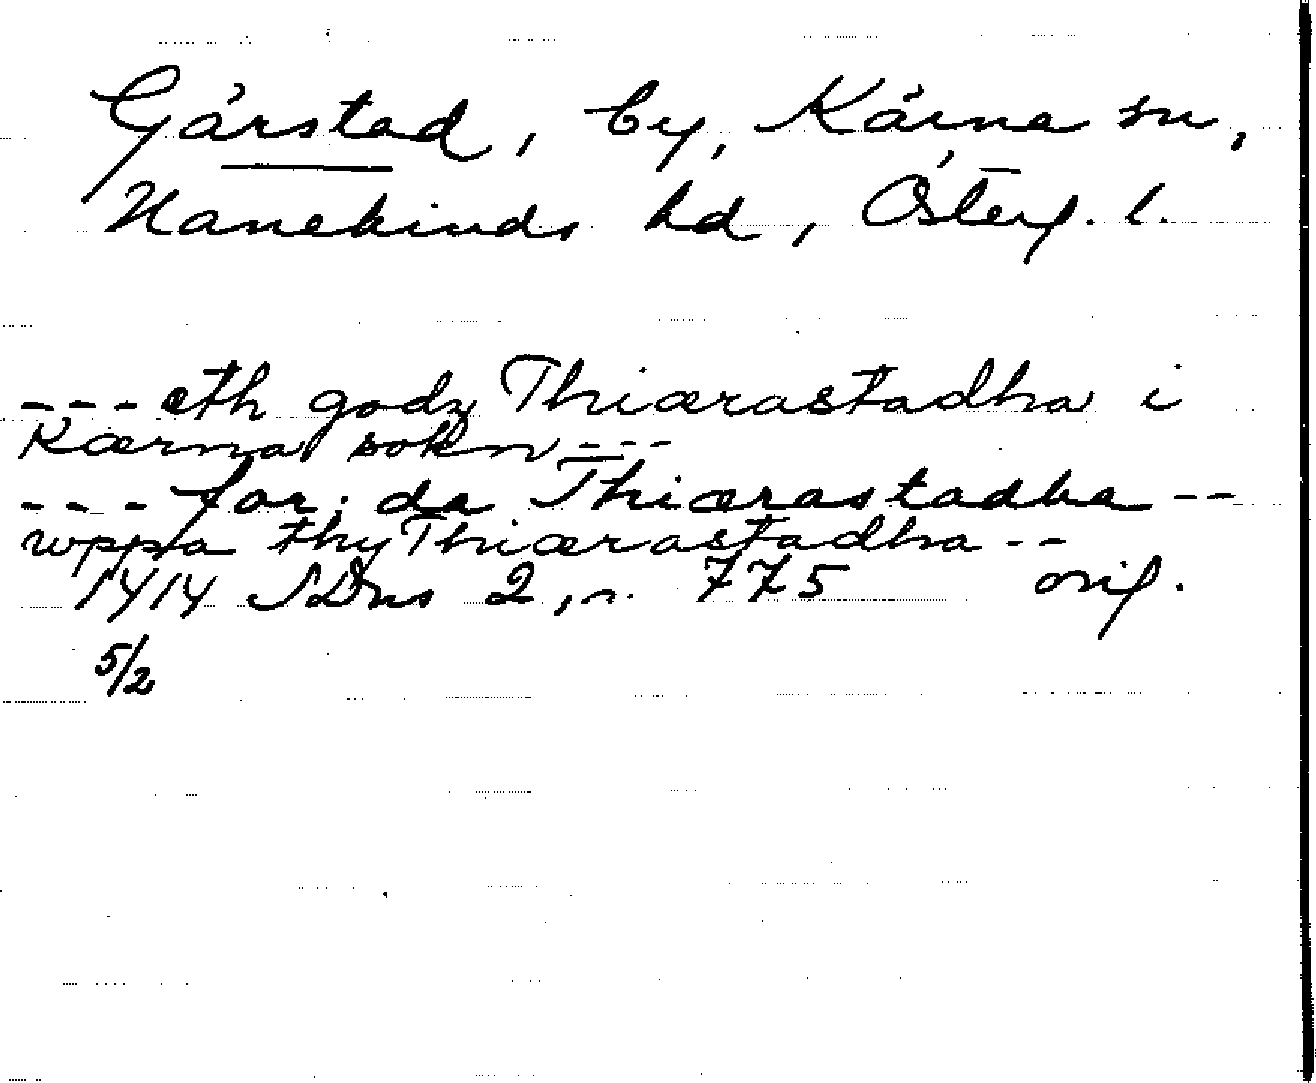 Gärstad, by, Kärna sn,
Hanekinds hd, Österg. l.
--- eth godz Thiærastadha i
Kærna sokn ---
--- for:da Thiærastadha --
uppa thy Thiærastadha --
1414 SDns 2, n. 775 orig.
5/2